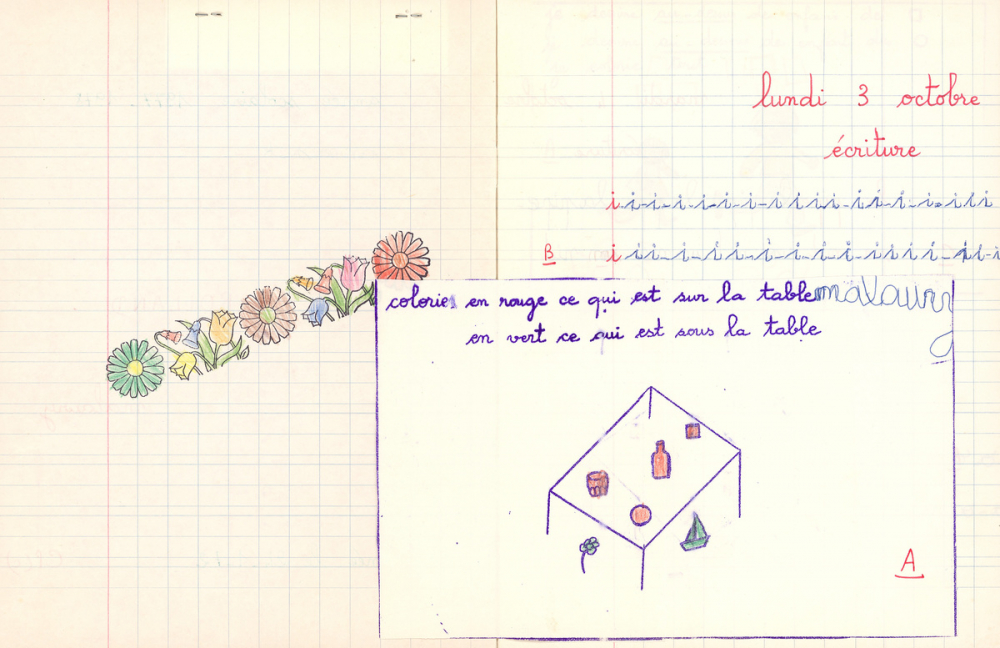 lundi 3 octobre
écriture
i i i i i i i i i i i i i i i i i i i
B i i i i i i i i i i i i i i i i i i
colorie en rouge ce qui est sur la table malaury
en vert ce qui est sous la table
A